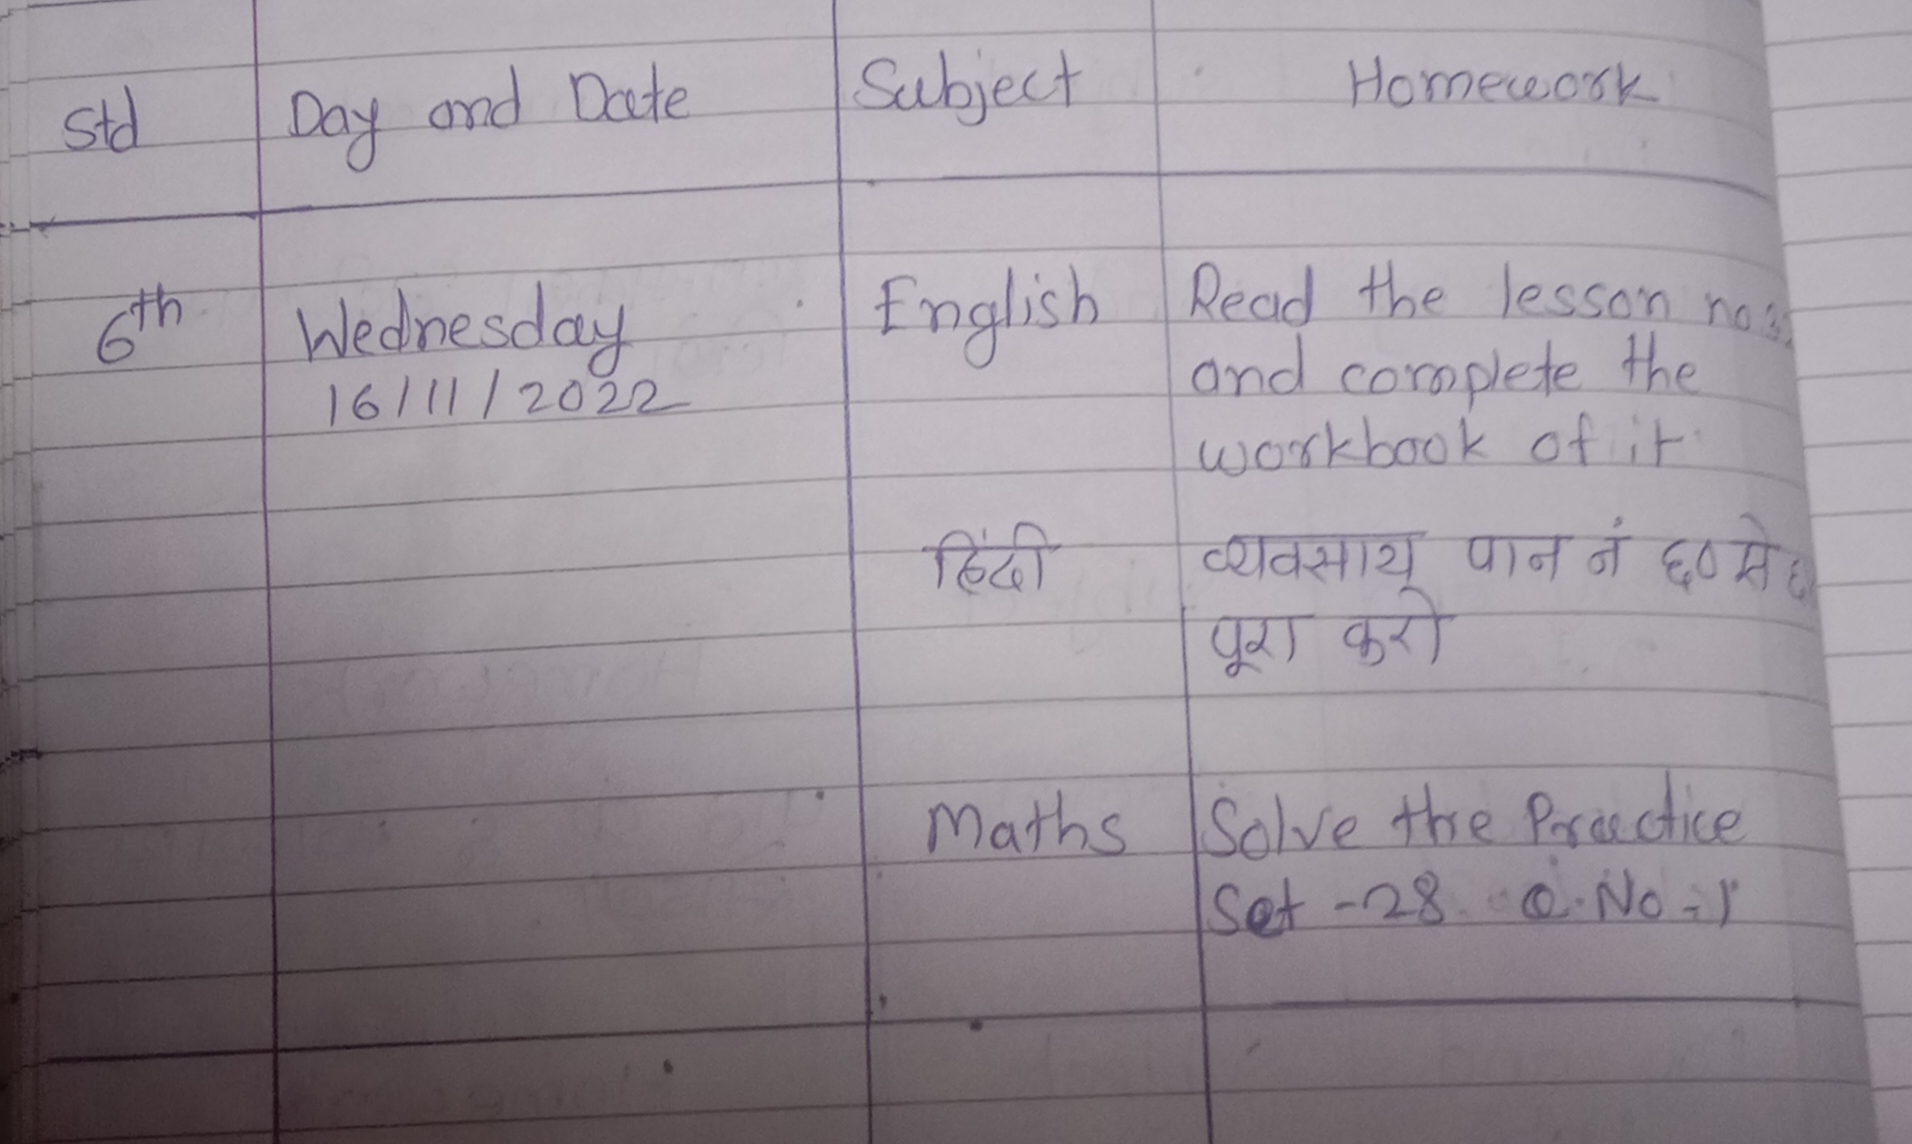 Std Day and Date Subject Homework
6th Wednesday English Read the lesson no
16/11/2022 and complete the
workbook of it
हिंदी व्यवसाय पान नं ६० से
पूरा करो
Maths Solve the Practice
Set -28 Q.No-1